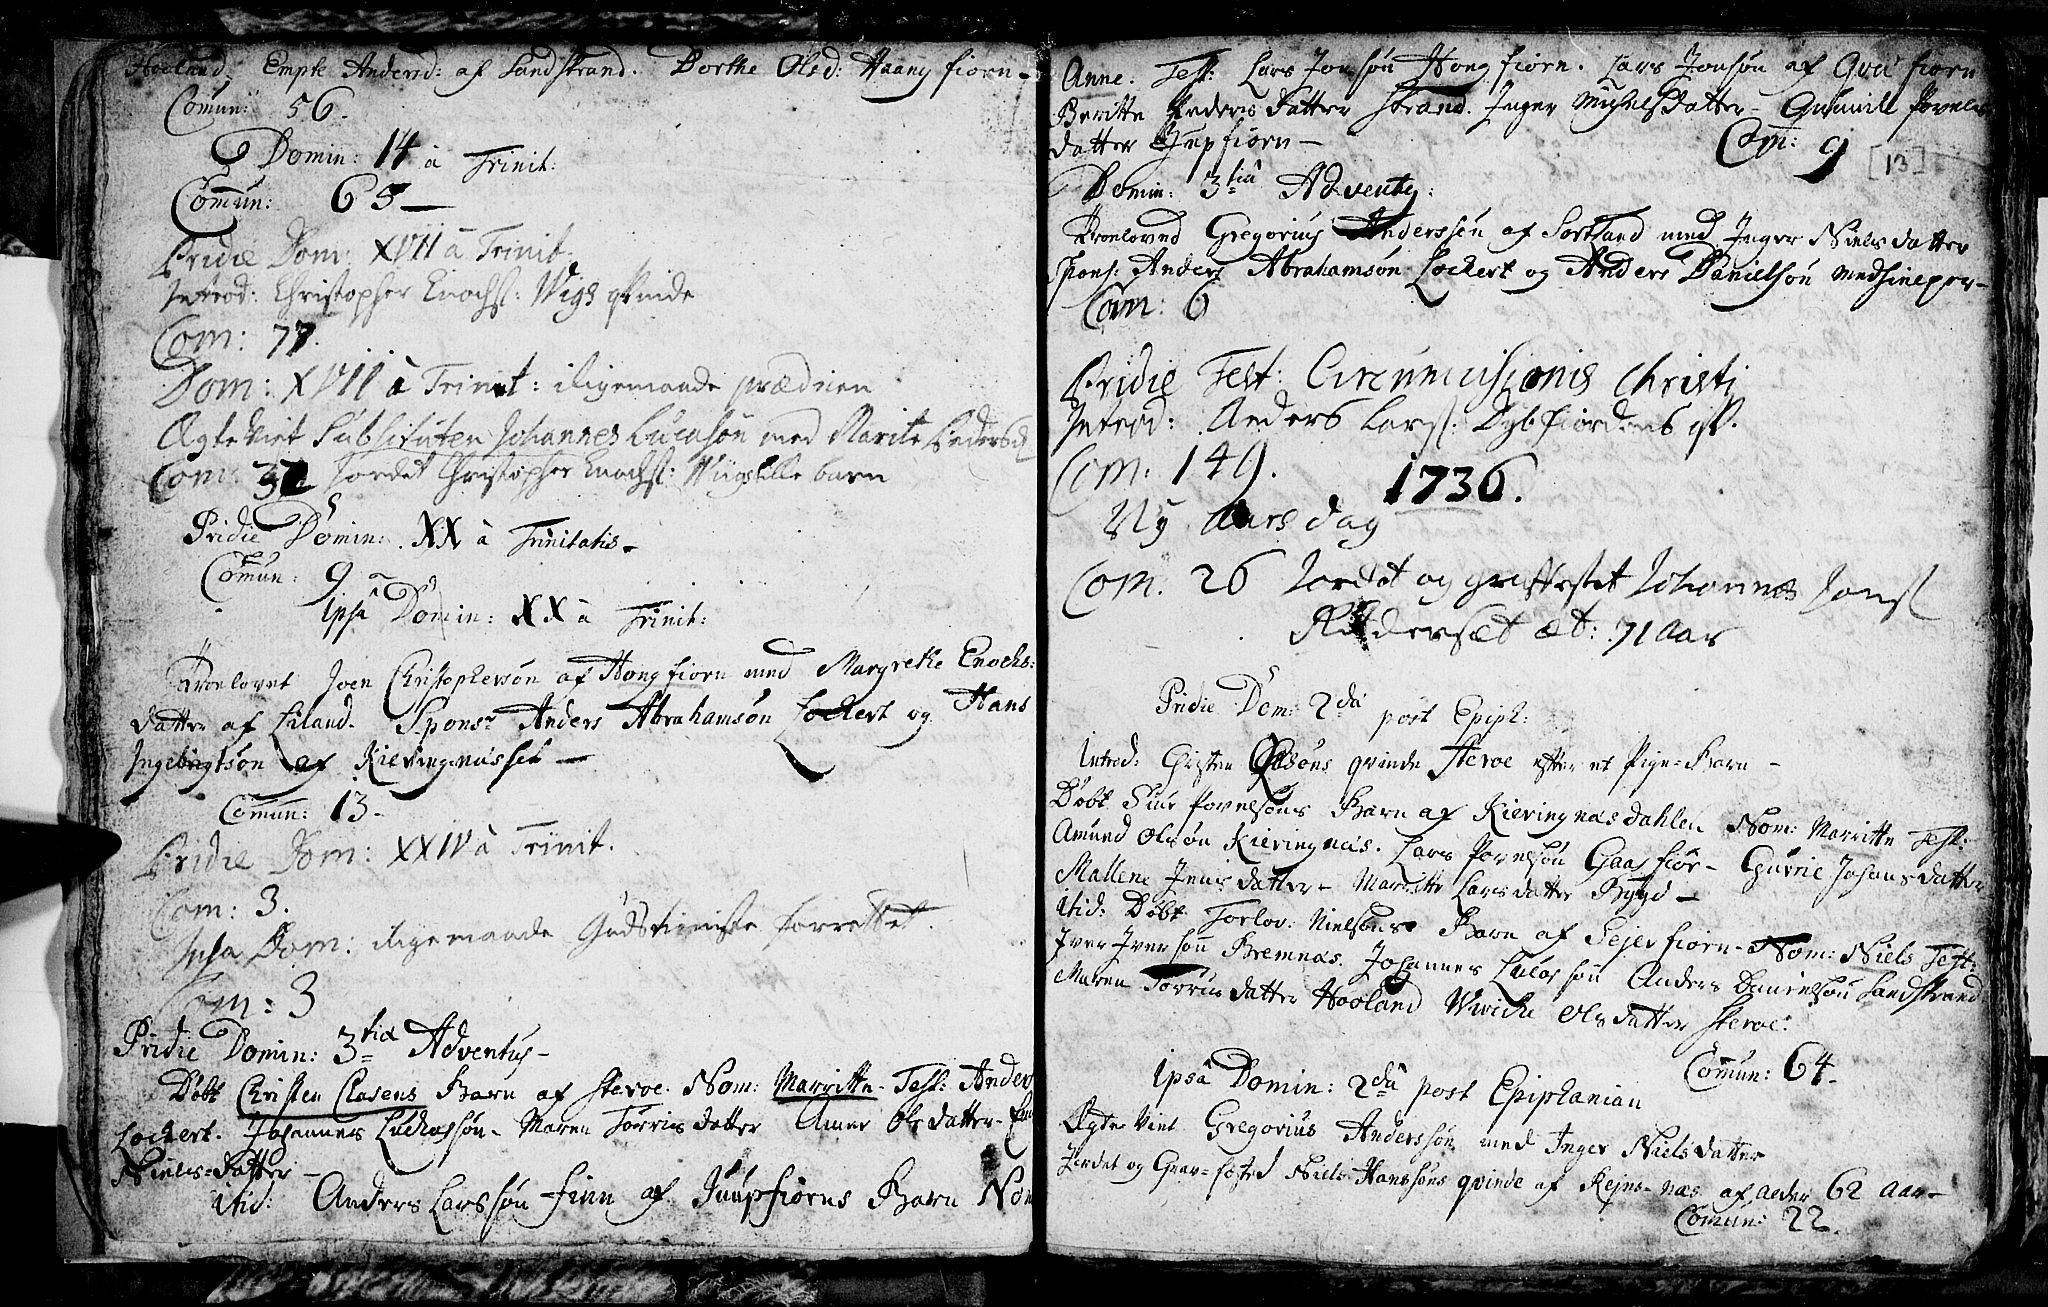 Hooland. Empte Andersd: af Sandstrand. Dorthe Olsd: Haangfiorn-
Comun: 56.
Domin: 14 à Trinit:
Comun: 65-
Pridie Dom: XVII à Trinit.
Introd: Christopher Enochs: Wigs qvinde
Com: 77.
Dom: XVII à Trinit: iligemaade prædiken
Ægte viet Substituten Johannes Lucasøn med Marite Pedersd
Com: 32 Jordet Christopher Enochs: Wiigs lille barn
Pridie Domin: XX à Trinitatis-
Comun: 9
Ipsâ Domin: XX à Trinit:
Troelovet Joen Christophersøn af Hongfiorn med Margrethe Enochs:
datter af Eiland. Spons: Anders Abrahamsøn Lockert og Hans
Ingebrigtsøn af Kieringnæsset-
Comun: 13-
Pridie Dom: XXIV à Trinit.
Com: 3.
Ipsa Dom: iligemaade Gudstieniste forrettet.
Com: 3
Pridie Domin: 3tia Adventus-
Døbt Christen Clasens Barn af Steroe. Nom: Marritte- Test: Anders
Lockert. Johannes Ludvassøn- Maren Torris datter Anne Ols datter-
Niels-datter-
itid: Anders Larssøn Finn af Juupfiorns Barn Nom
Anne. Test: Lars Jonsøn Hongfiorn. Lars Jonsøn af Qvæfiorn
Beritte Peders datter Strand. Inger Michelsdatter- Gunnild Povels
datter Jupfiorn-
Com: 9 [13]
Domin: 3tiâ Adventy:
Troeloved Gregorius Anderssøn af Sortland med Inger Niels datter
Spons: Anders Abrahamsøn Lockert og Anders Danielsøn medsineper-
Com: 6
Pridie Fest: Circumcisionis Christi
Introd: Anders Larss: Dybfiordens qv.
Com: 149.
1736.
Ny Aars dag
Com. 26 Jordet og graffestet Johannes Jons
Rødersæt æt: 71 Aar
Pridie Dom: 2da post Epiph:
Introd: Christen Clasøns qvinde Steroe efter et Pige-Barn-
Døbt Siur Povelsøns Barn af Kieringnæsdahlen Nom: Marritte Test:
Amund Olsøn Kieringnæs. Lars Povelsøn Gaasfior- Gurnie Johans datter
Mallene Jenis datter- Marritte Lars datter Bygd-
itid: Døbt Torlov: Nielsøns Barn af Sejerfiorn- Nom: Niels Test:
Iver Iversøn Bremnæs. Johannes Lucassøn Anders Danielsøn Sandstrand
Maren Torris datter Hooland Wiviche Ols datter Steroe.
Comun: 64-
Ipsâ Domin: 2dâ post Epiphanian
Ægte Viet Gregorius Anderssøn med Inger Niels datter
Jordet og Grav-fæsted Niels Hanssøns qvinde af Rejns-næs af alder 62 aar-
Comun: 22.